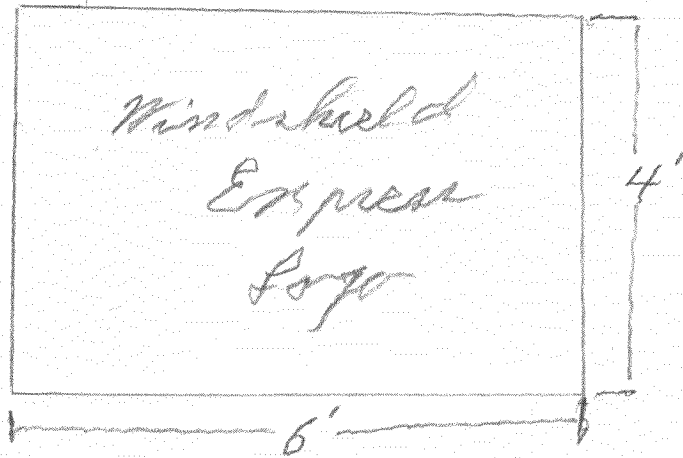 Windshield
Express
Logo
4'
6'